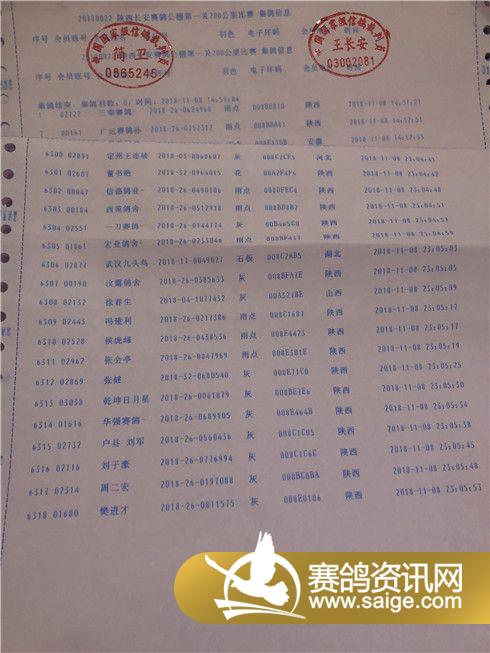 20180022 陕西长安赛鸽公棚第一关200公里比赛 集鸽信息
序号 会员账号 羽色 电子环码
中国国家级信鸽裁判员
简卫
0865245
中国国家级信鸽裁判员
王长安
03002081
集鸽结束, 集鸽羽数: 0, 时间: 2018-11-08
1 02122 三秦赛鸽- 2018-26-0624968 雨点 陕西 2018-11-08 14:51:21
2 00161 广运赛鸽孙 雨点 陕西 2018-11-08
安徽
6300 02891 定州王连续 2018-03-0060607 灰 008C2CF5 河北 2018-11-08 23:04:41
6301 02607 董书艳 2018-32-0964015 花 00A2F4F6 陕西 2018-11-08 23:04:46
6302 00047 信德鸽业- 2018-26-0490106 雨点 008DFEC4 陕西 2018-11-08 23:04:48
6303 00184 西苑鸽舍 2018-26-0512918 雨点 008BD0B2 陕西 2018-11-08 23:04:51
6304 02551 一刀赛鸽 2018-26-0144774 灰 00B465C0 陕西 2018-11-08 23:04:59
6305 01861 宏业鸽舍- 2018-26-0233046 雨点 陕西 2018-11-08 23:04:59
6306 02877 武汉九头鸟 2018-17-0049027 石板 008C2AB5 湖北 2018-11-08 23:05:03
6307 00190 汶露鸽舍 2018-26-0385633 灰 008BFA2E 陕西 2018-11-08 23:05:09
6308 02132 徐春生 2018-04-1077432 灰 00A327BE 山西 2018-11-08 23:05:12
6309 02443 冯建利 2018-26-0217386 雨点 008C1681 陕西 2018-11-08 23:05:17
6310 02528 侯虎峰 2018-26-0438536 雨点 008E4423 陕西 2018-11-08 23:05:19
6311 02962 张会亭 2018-26-0847969 雨点 008E5B1E 陕西 2018-11-08 23:05:21
6312 02869 张健 2018-32-0680540 灰 008E71C0 陕西 2018-11-08 23:05:25
6313 03030 乾坤日月星 2018-26-0061879 灰 008BE1E6 陕西 2018-11-08 23:05:30
6314 01616 华强赛鸽- 2018-26-0689105 灰 008E464B 陕西 2018-11-08 23:05:34
6315 02732 户县 刘军 2018-26-0560436 灰 008C1C05 陕西 2018-11-08 23:05:38
6316 02116 刘子豪 2018-26-0776994 灰 008C1C6C 陕西 2018-11-08 23:05:45
6317 02314 周二宏 2018-26-0197088 灰 008BC8BA 陕西 2018-11-08 23:05:48
6318 01680 樊进才 2018-26-0811575 灰 008E0106 陕西 2018-11-08 23:05:53
赛鸽资讯网
www.saige.com